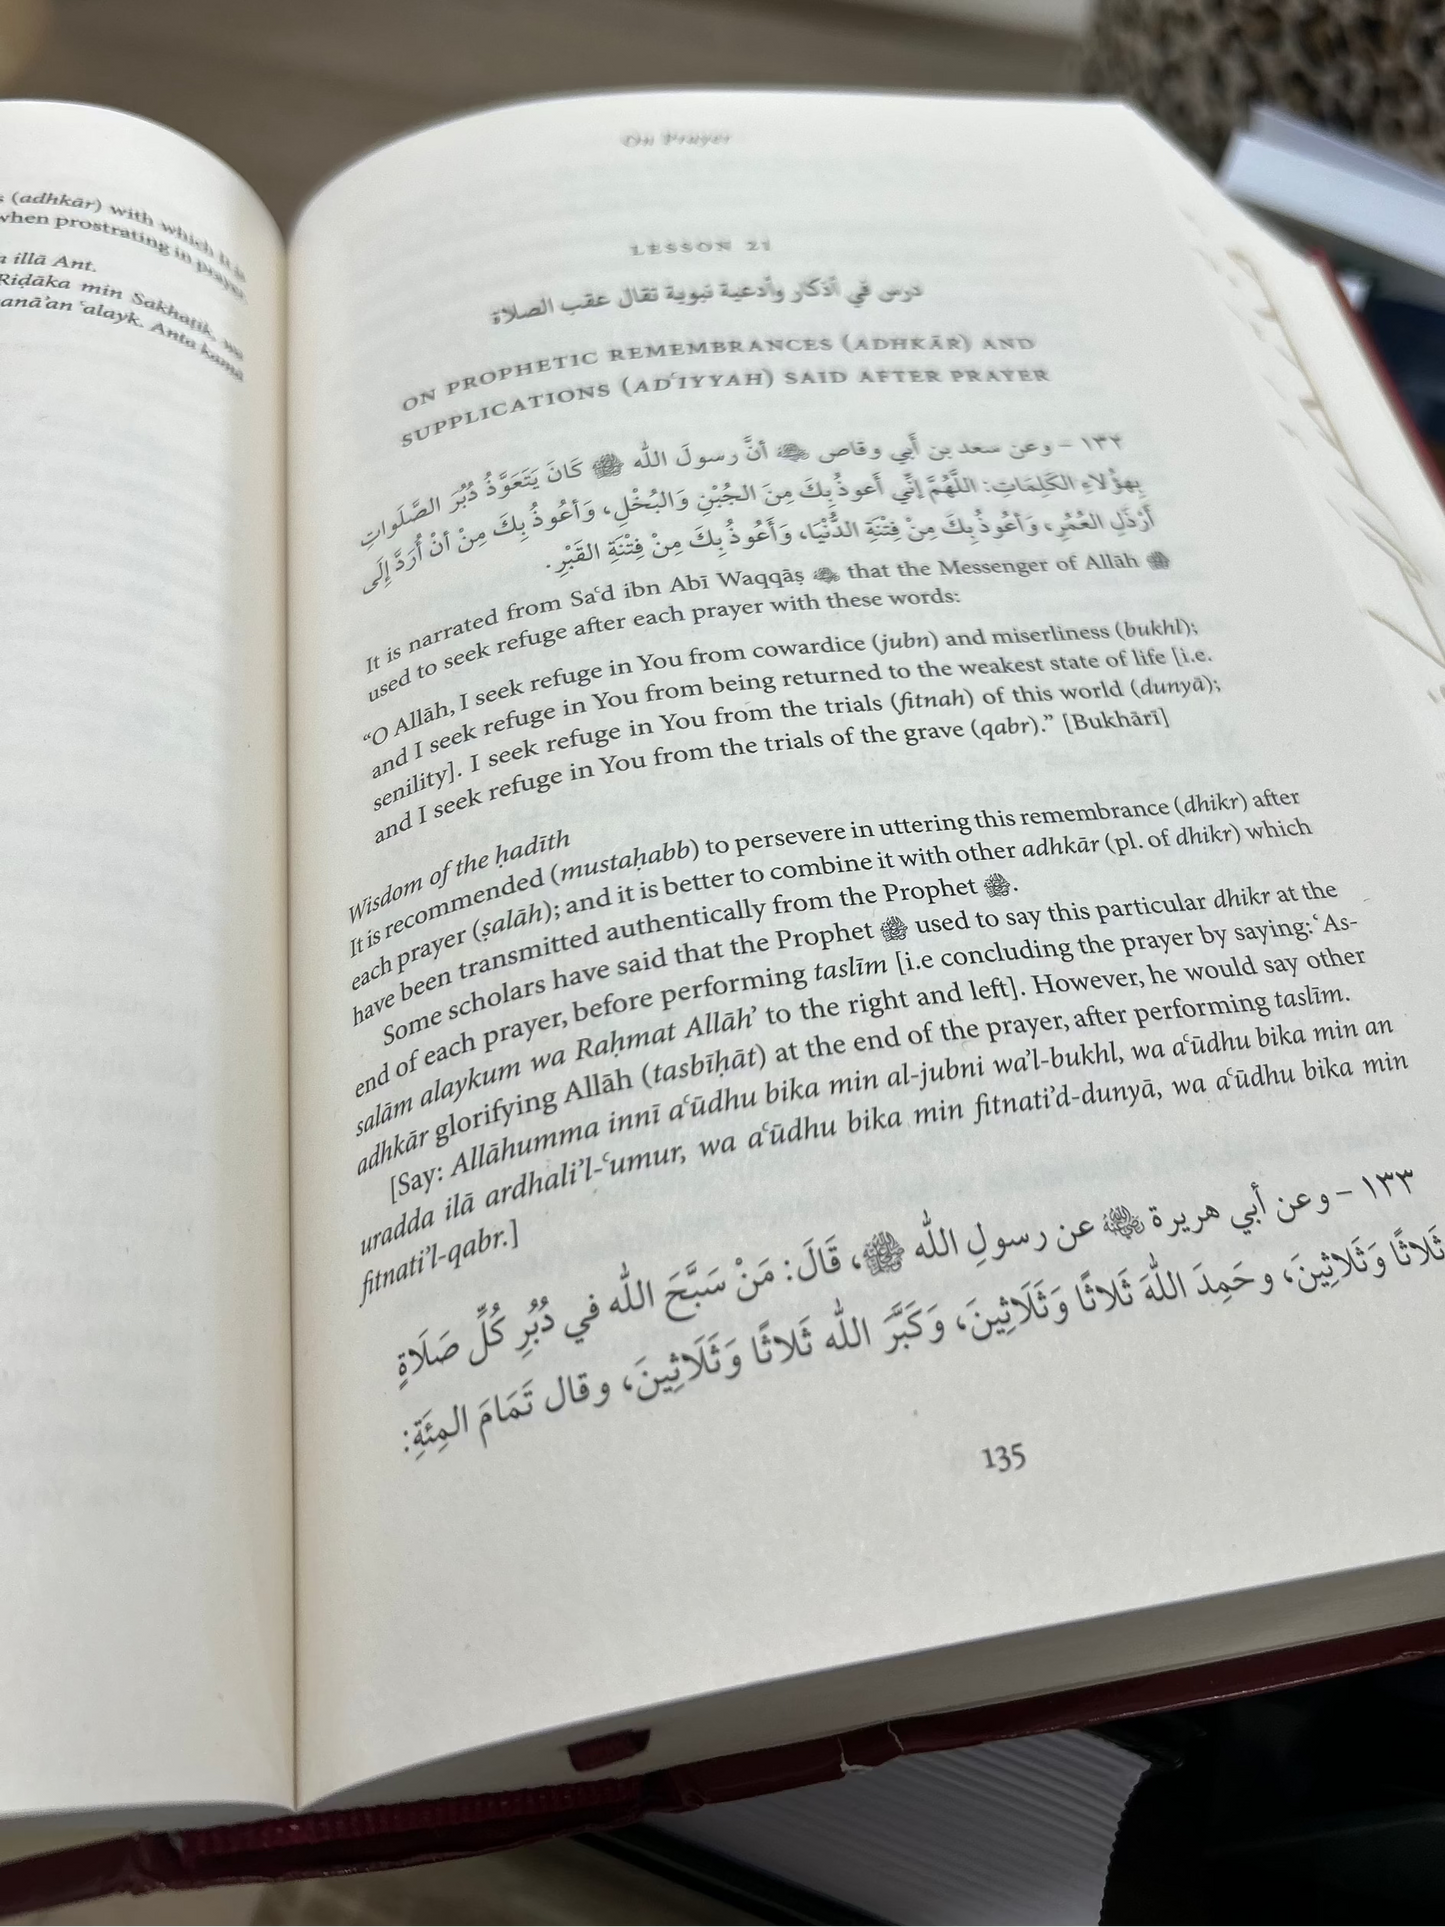 s (adhkār) with which it is
when prostrating in prayer
illā Ant.
Riḍāka min Sakhaṭik, wa
anā'an ʿalayk. Anta kamā
On Prayer
LESSON 21
درس في أذكار وأدعية نبوية تقال عقب الصلاة
ON PROPHETIC REMEMBRANCES (ADHKĀR) AND
SUPPLICATIONS (ADʿIYYAH) SAID AFTER PRAYER
١٣٢ – وعن سعد بن أبي وقاص ﵁ أنَّ رسولَ الله ﷺ كَانَ يَتَعَوَّذُ دُبُرَ الصَّلَواتِ
بِهؤُلاءِ الكَلِمَاتِ: اللَّهُمَّ إنِّي أَعوذُ بِكَ مِنَ الجُبْنِ وَالبُخْلِ، وَأعُوذُ بِكَ مِنْ أنْ أُرَدَّ إِلَى
أَرْذَلِ العُمُرِ، وَأعُوذُ بِكَ مِنْ فِتْنَةِ الدُّنْيَا، وَأَعُوذُ بِكَ مِنْ فِتْنَةِ القَبْرِ.
It is narrated from Saʿd ibn Abī Waqqāṣ ﵁ that the Messenger of Allāh ﷺ
used to seek refuge after each prayer with these words:
“O Allāh, I seek refuge in You from cowardice (jubn) and miserliness (bukhl);
and I seek refuge in You from being returned to the weakest state of life [i.e.
senility]. I seek refuge in You from the trials (fitnah) of this world (dunyā);
and I seek refuge in You from the trials of the grave (qabr).” [Bukhārī]
Wisdom of the ḥadīth
It is recommended (mustaḥabb) to persevere in uttering this remembrance (dhikr) after
each prayer (ṣalāh); and it is better to combine it with other adhkār (pl. of dhikr) which
have been transmitted authentically from the Prophet ﷺ.
Some scholars have said that the Prophet ﷺ used to say this particular dhikr at the
end of each prayer, before performing taslīm [i.e concluding the prayer by saying:ʿ As-
salām alaykum wa Raḥmat Allāh’ to the right and left]. However, he would say other
adhkār glorifying Allāh (tasbīḥāt) at the end of the prayer, after performing taslīm.
[Say: Allāhumma innī aʿūdhu bika min al-jubni wa’l-bukhl, wa aʿūdhu bika min an
uradda ilā ardhali’l-ʿumur, wa aʿūdhu bika min fitnati’d-dunyā, wa aʿūdhu bika min
fitnati’l-qabr.]
١٣٣ – وعن أبي هريرة ﵁ عن رسولِ الله ﷺ، قَالَ: مَنْ سَبَّحَ الله في دُبُرِ كُلِّ صَلَاةٍ
ثَلاثًا وَثَلاثِينَ، وحَمِدَ اللهَ ثَلاثًا وَثَلَاثِينَ، وَكَبَّرَ الله ثَلاثًا وَثَلَاثِينَ، وقال تَمَامَ المِئَةِ:
135